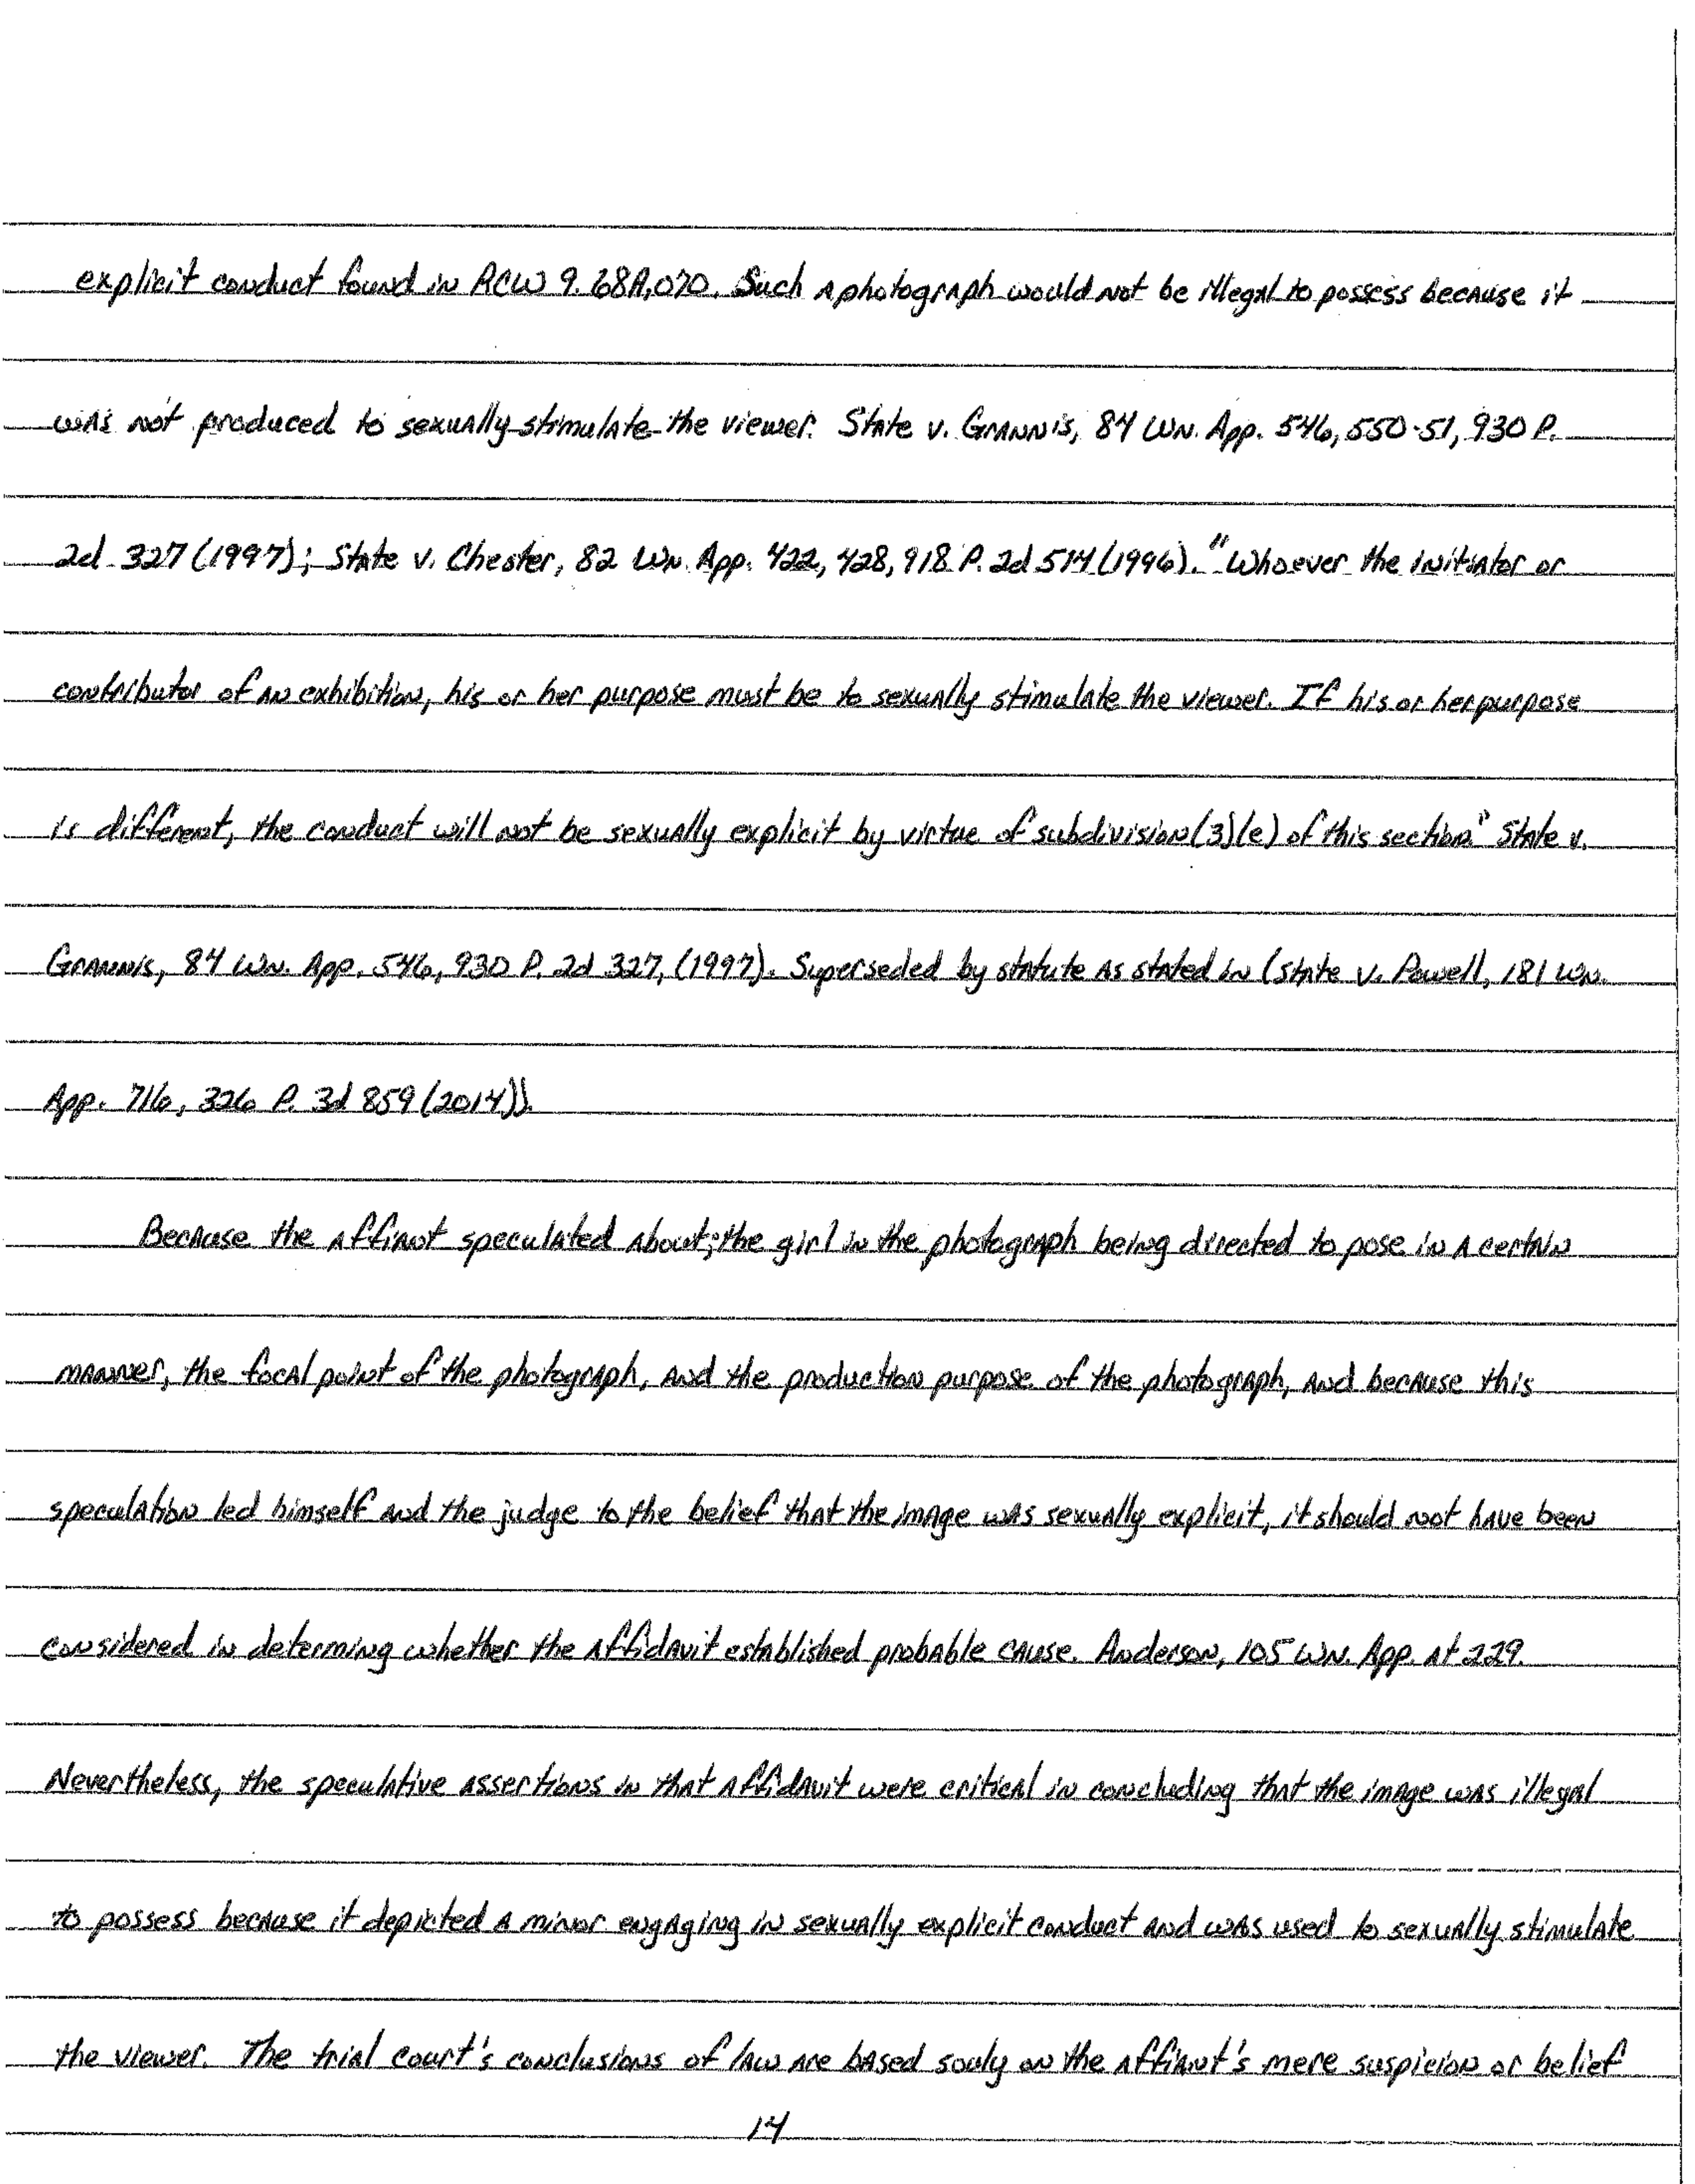 explicit conduct found in RCW 9.68A,070. Such a photograph would not be illegal to possess because it
was not produced to sexually stimulate the viewer. State v. Grannis, 84 Wn. App. 546, 550-51, 930 P.
2d 327 (1997); State v. Chester, 82 Wn. App. 422, 428, 918 P. 2d 514 (1996). "Whoever the initiator or
contributor of an exhibition, his or her purpose must be to sexually stimulate the viewer. If his or her purpose
is different, the conduct will not be sexually explicit by virtue of subdivision (3)(e) of this section." State v.
Grannis, 84 Wn. App. 546, 930 P. 2d 327, (1997). Superseded by statute as stated in (State v. Powell, 181 Wn.
App. 716, 326 P. 3d 859 (2014)).
Because the affiant speculated about; the girl in the photograph being directed to pose in a certain
manner, the focal point of the photograph, and the production purpose of the photograph, and because this
speculation led himself and the judge to the belief that the image was sexually explicit, it should not have been
considered in determing whether the affidavit established probable cause. Anderson, 105 Wn. App. at 229.
Nevertheless, the speculative assertions in that affidavit were critical in concluding that the image was illegal
to possess because it depicted a minor engaging in sexually explicit conduct and was used to sexually stimulate
the viewer. The trial court's conclusions of law are based souly on the affiant's mere suspicion or belief
14